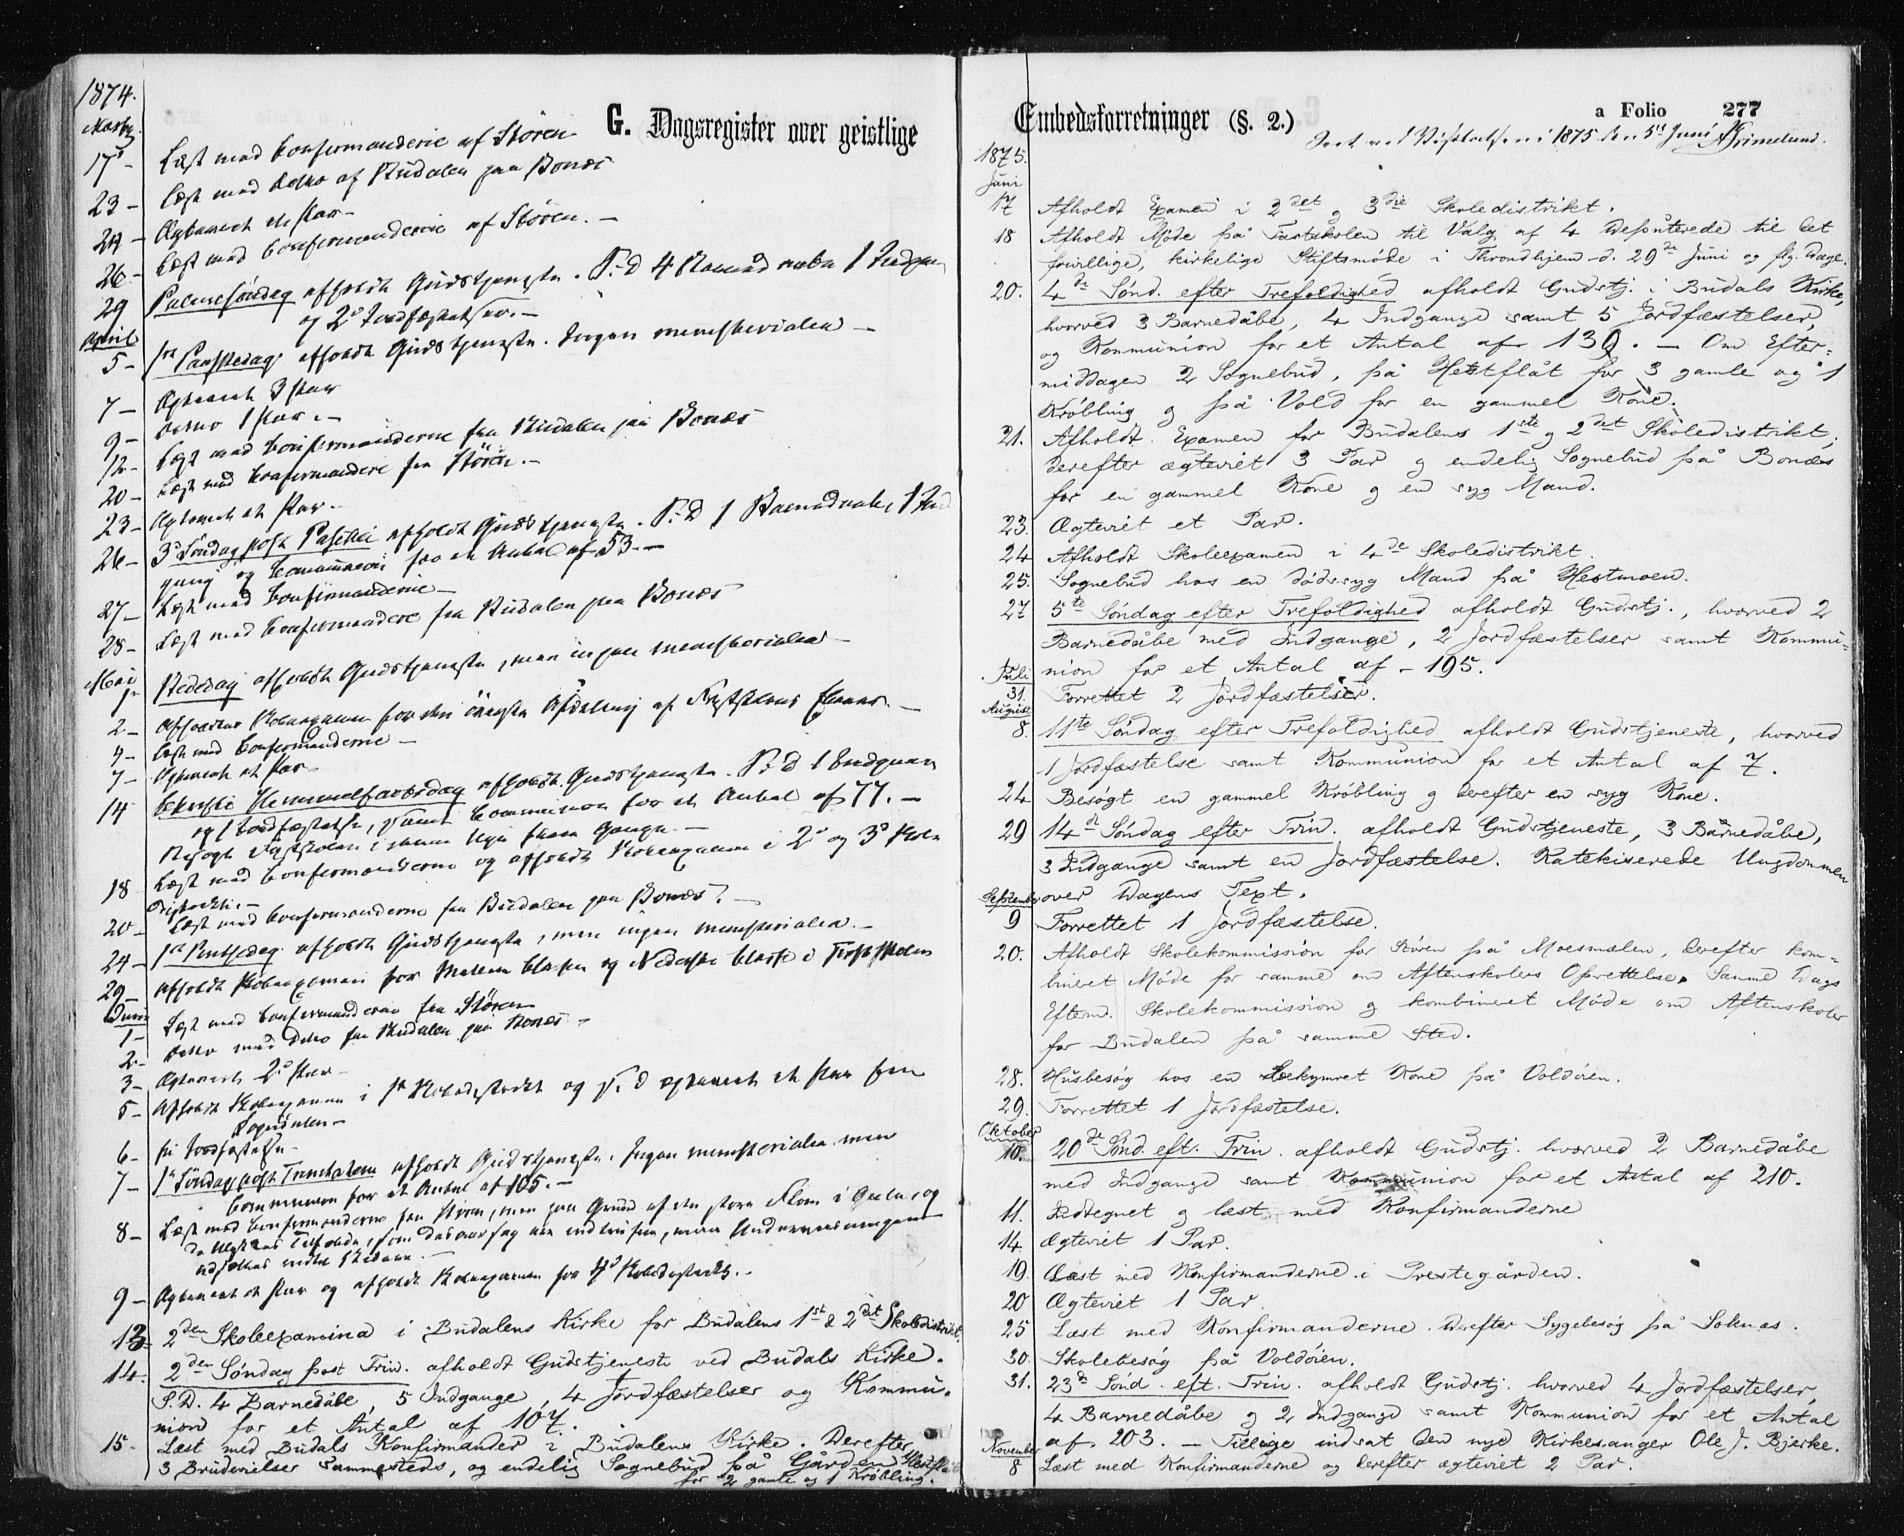 1874.
G. Dagsregister over geistlige
Marts
17 - Læst med Confirmanderne af Støren
23 - Læst med Ditto af Budalen paa Bonæs
24 - Ægteviet et Par -
26 - Læst med Confirmanderne af Støren. -
29 Palmesøndag afholdt Gudstjeneste. S. D. 4 Barnedaabe 1 Indgan
og 2 Jordfæstelser. -
April
5 - 1ste Paaskedag afholdt Gudstjeneste. Ingen ministerialia -
7 - Ægteviet 3 Par
9 - Ditto 1 Par. -
12 - Læst med Confirmanderne fra Budalen paa Bonæs
20 - Læst med Confirmanderne fra Støren. -
23 - Ægteviet et Par. -
26 - 3die Søndag post Paschæ afholdt Gudstjeneste. S. D. 1 Barnedaab, 1 Ind
gang og Communion for et Antal af 53. -
27 - Læst med Confirmanderne -
28 - Læst med Confirmanderne fra Budalen paa Bonæs
Mai
1 - Bededag afholdt Gudstjeneste, men ingen ministerialia -
2 - Afholdt Skoleexamen for den Afdeling af
4 - Læst med Confirmanderne -
7 - Ægteviet et Par
14 Christi Himmelfartsdag afholdt Gudstjeneste. S. D. 1 Indgan
og 1 Jordfæstelse, samt Communion for et Antal af 77. -
Besøgt Fastskolen
18 Læst med Confirmanderne og afholdt Skoleexamen i 2 og 3 Skole
distrikt. -
20 - Læst med Confirmanderne fra Budalen paa Bonæs. -
24 - 1ste Pintsedag afholdt Gudstjeneste, men ingen ministerialia. -
29 - Afholdt Skoleexamen for Mellem Classen og Nederste Classe i Fastskolen
Juni
1 - Læst med Confirmanderne fra Støren
2 - Ditto med Ditto fra Budalen paa Bonæs -
3 - Ægteviet 2 Par -
5 - Afholdt Skoleexamen i 1ste Skoledistrikt og S. D. ægteviet et Par fra
Soknedalen -
6 - En Jordfæstelse -
7 - 1ste Søndag post Trinitatem afholdt Gudstjeneste. Ingen ministerialia men
Communion for et Antal af 105. -
8 - Læst med Confirmanderne fra Støren, men paa Grund af den store Flom i Gula, og
9 - Ægteviet et Par og afholdt Skoleexamen for 4de Skoledistrikt. -
13 - 2den Skoleexamina i Budalens Kirke for Budalens 1st & 2det Skoledistrikt.
14. 2den Søndag post Trin. afholdt Gudstjeneste ved Budals Kirke.
S. D. 4 Barnedåbe, 5 Indgange, 4 Jordfæstelser og Kommu-
nion for et Antal af 107.
15. Læst med Budals Konfirmander i Budalens Kirke. Derefter
3 Brudevielser sammesteds, og endelig Sognebud på Gården Hestflåt
for 2 gamle og 1 Krøbling.
Embedsforretninger (§. 2.)
a Folio 277
Seet ved Visitatsen i 1875 den 5te Juni AGrimelund.
1875.
Juni
17 Afholdt Examen i 2det og 3die Skoledistrikt.
18 Afholdt Møde på Fastskolen til Valg af 4 Deputerede til det
frivillige, kirkelige Stiftsmøde i Throndhjem d. 29de Juni og flg. Dage.
20. 4de Sønd. efter Trefoldighed afholdt Gudstj. i Budals Kirke,
hvorved 3 Barnedåbe, 4 Indgange samt 5 Jordfæstelser,
og Kommunion for et Antal af 130. - Om Efter-
middagen 2 Sognebud, på Hestflåt for 3 gamle og 1
Krøbling og på Vold for en gammel Kone.
21. Afholdt Examen for Budalens 1ste og 2det Skoledistrikt,
derefter ægteviet 3 Par og endelig Sognebud på Bonæs
for en gammel Kone og en syg Mand.
23. Ægteviet et Par.
24 Afholdt Skoleexamen i 4de Skoledistrikt.
25. Sognebud hos en dødssyg Mand på Hestmoen.
27 5te Søndag efter Trefoldighed afholdt Gudstj., hvorved 2
Barnedåbe med Indgange, 2 Jordfæstelser samt Kommu-
nion for et Antal af - 195.
Juli
31. Forrettet 2 Jordfæstelser.
August
8. 11te Søndag efter Trefoldighed afholdt Gudstjeneste, hvorved
1 Jordfæstelse samt Kommunion for et Antal af 7.
24 Besøgt en gammel Krøbling og derefter en syg Kone.
29 14de Søndag efter Trin. afholdt Gudstjeneste, 3 Barnedåbe,
3 Indgange samt en Jordfæstelse. Katekiserede Ungdommen
over Dagens Text.
September
9 Forrettet 1 Jordfæstelse.
20. Afholdt Skolekommission for Støren på Moesmælen, derefter kom-
bineret Møde for samme om Aftenskolers Oprettelse. Samme Dags
Efterm. Skolekommission og kombineret Møde om Aftenskoler
for Budalen på samme Sted.
28. Husbesøg hos en bekymret Kone på Voldøien.
29. Forrettet 1 Jordfæstelse.
Oktober
10. 20de Sønd. eft. Trin. afholdt Gudstj. hvorved 2 Barnedåbe
med Indgange samt Kommunion for et Antal af 210.
11. Indtegnet og læst med Konfirmanderne
14 Ægteviet 1 Par.
19. Læst med Konfirmanderne i Prestegården.
20 Ægteviet 1 Par.
25 Læst med Konfirmanderne. Derefter Sygebesøg på Soknæs.
30. Skolebesøg på Voldøien.
31. 23de Sønd. eft. Trin. afholdt Gudstj. hvorved 4 Jordfæstelser,
4 Barnedåbe og 2 Indgange samt Kommunion for et Antal
af 203. - Tillige indsat den nye Kirkesanger Ole J. Bjerke.
November
8 Læst med Konfirmanderne og derefter ægteviet 2 Par.